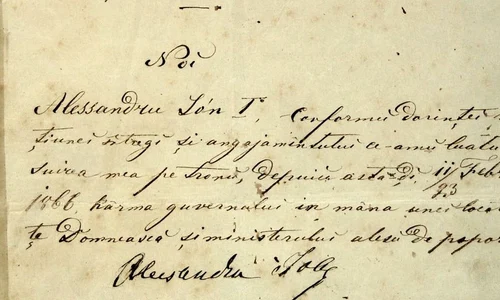 Noi
Alessandru Ión I., Conformŭ dorinței
țiunei întregi și angajamentului ce-amŭ luatŭ
suirea mea pe tronŭ, depuiŭ astă-ḑi 11/23 Febr
1866 kârma guvernului in mâna unei loco
țe Domnească și ministerului alesŭ de popor
Alecsandru Ioan